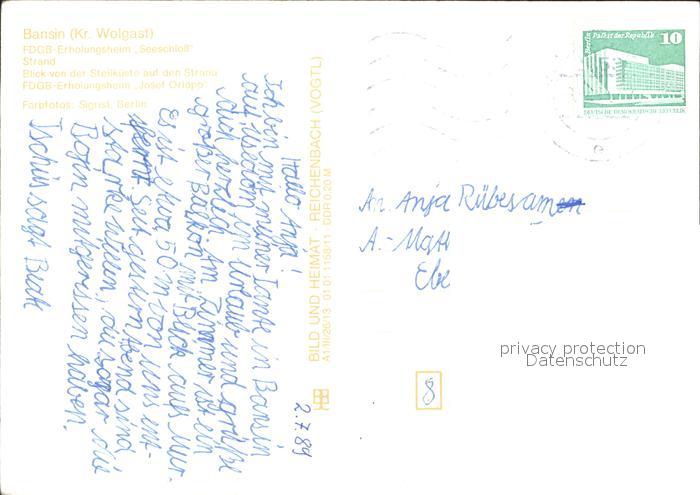 Bansin (Kr. Wolgast)
FDGB-Erholungsheim „Seeschloß"
Strand
Blick von der Steilküste auf den Strand
FDGB-Erholungsheim „Josef Orlopp"
Farbfotos: Signsl, Berlin
BILD UND HEIMAT · REICHENBACH (VOGTL)
A1/III/26/13 01 01 1158/11 DDR 0,20 M
2.7.89
Hallo Anja!
Ich bin mit meiner Tante in Bansin
auf Usedom im Urlaub und grüße
dich herzlich. Am Zimmer ist ein
großer Balkon mit Blick aufs Meer.
Es ist etwa 50 m von uns ent-
fernt. Seit gestern Abend sind
starke Wellen, die sogar die
Bojen mitgerissen haben.
Tschüs sagt Beate
An Anja Rübesamen
A.-
Berlin Palast der Republik 10
DEUTSCHE DEMOKRATISCHE REPUBLIK
8
privacy protection
Datenschutz